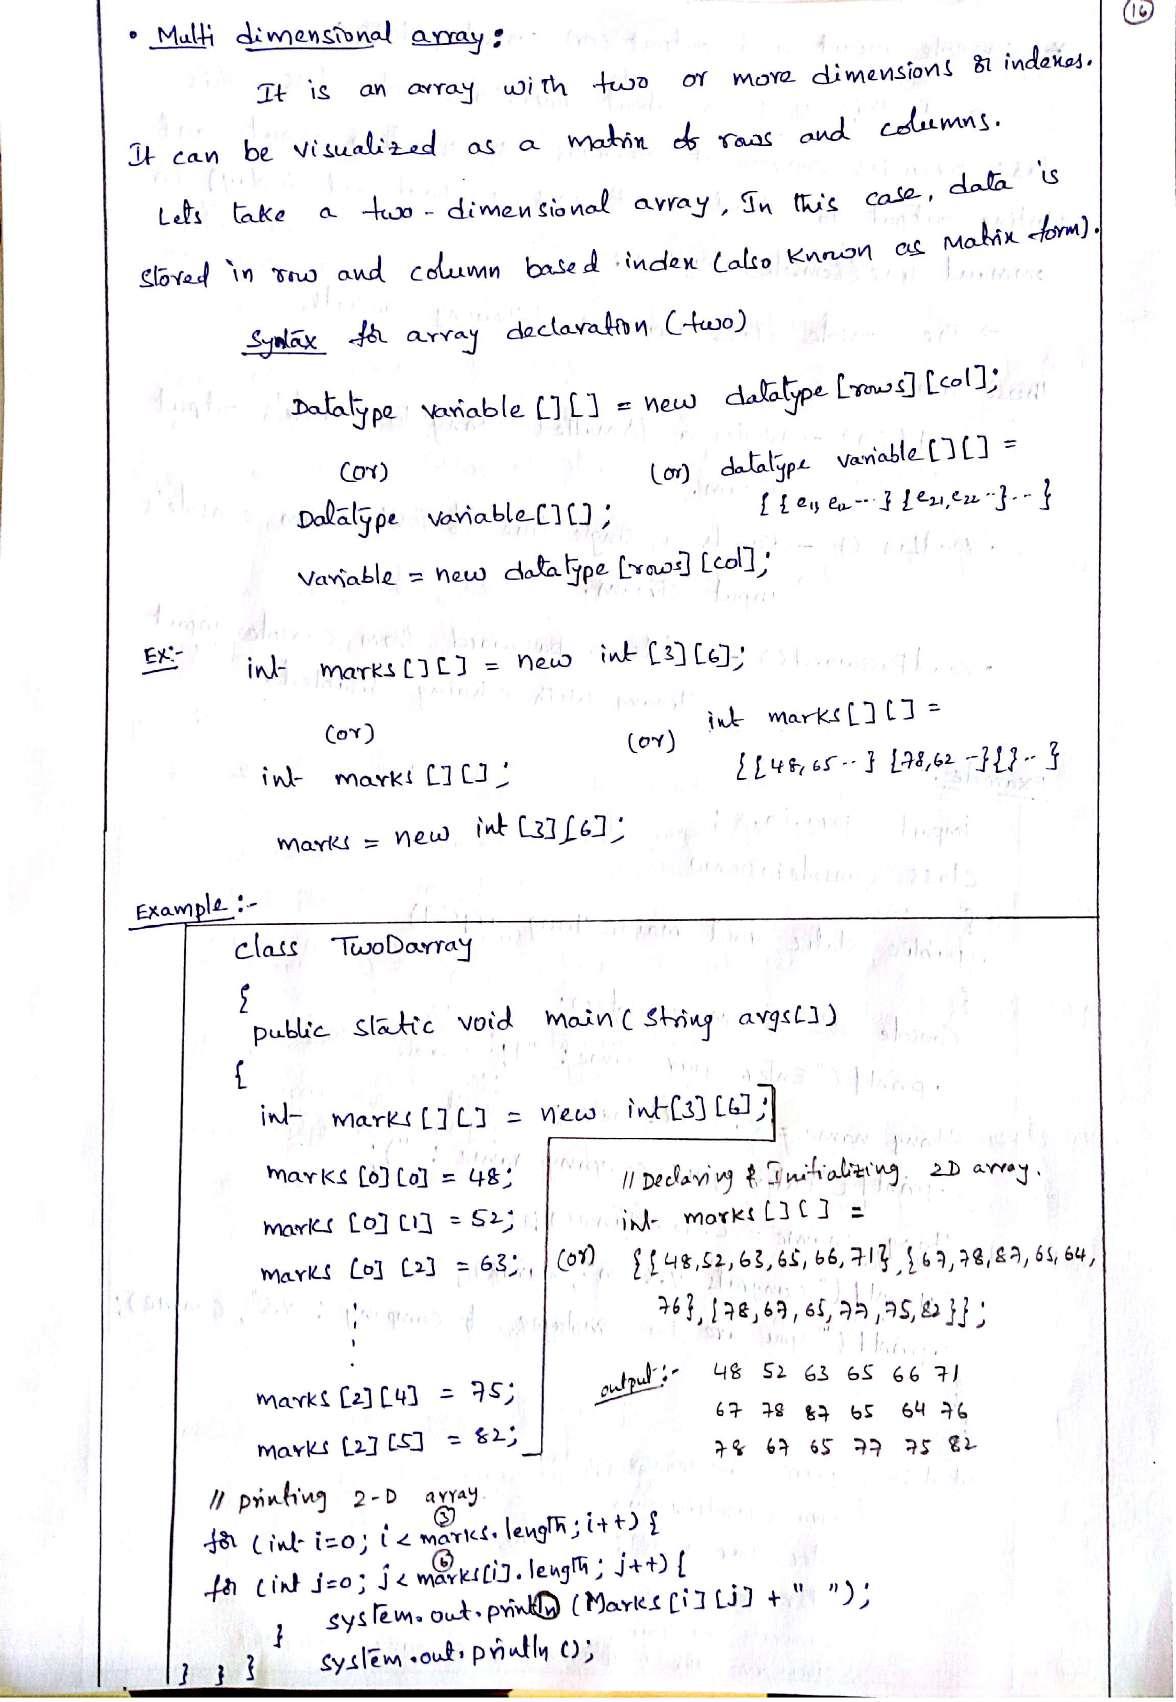 16
• Multi dimensional array :
It is an array with two or more dimensions or indexes.
It can be visualized as a matrix of rows and columns.
Lets take a two - dimensional array, In this case, data is
stored in row and column based index (also known as Matrix form).
Syntax for array declaration (two)
Datatype variable [][] = new datatype [rows] [col];
(or)
(or) datatype variable [][] =
{ { e11, e12 --- } { e21, e22 --} -- }
Datatype variable [][] ;
variable = new datatype [rows] [col];
Ex:-
int marks [][] = new int [3] [6];
(or)
(or) int marks [][] =
{ { 48, 65 -- } { 78, 62 --} {} -- }
int marks [][] ;
marks = new int [3] [6] ;
Example :-
class TwoDarray
{
public static void main ( String args[])
{
int marks [][] = new int [3] [6] ;
marks [0] [0] = 48;
marks [0] [1] = 52;
marks [0] [2] = 63;
marks [2] [4] = 75;
marks [2] [5] = 82;
(or)
// Declaring & Initializing 2D array.
int marks [][] =
{ { 48, 52, 63, 65, 66, 71}, { 67, 78, 87, 65, 64,
76}, { 78, 67, 65, 77, 75, 82 } } ;
output :- 48 52 63 65 66 71
67 78 87 65 64 76
78 67 65 77 75 82
// printing 2-D array
3
for ( int i=0; i < marks. length ; i++) {
6
for ( int j=0; j < marks[i]. length ; j++) {
system. out. println ( Marks [i] [j] + " " );
}
system . out. println ();
} } }